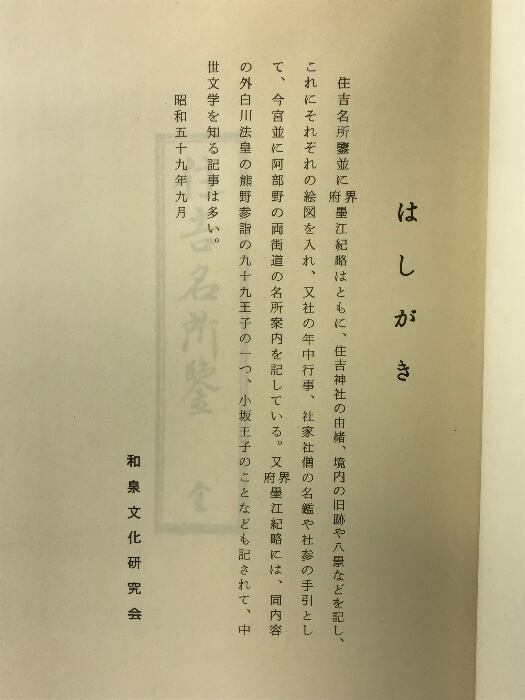 はしがき
住吉名所鑒並に界府墨江紀略はともに、住吉神社の由緒、境内の旧跡や八景などを記し、
これにそれぞれの絵図を入れ、又社の年中行事、社家社僧の名鑑や社参の手引とし
て、今宮並に阿部野の両街道の名所案内を記している。又界府墨江紀略には、同内容
の外白川法皇の熊野参詣の九十九王子の一つ、小坂王子のことなども記されて、中
世文学を知る記事は多い。
昭和五十九年九月
和泉文化研究会
住吉名所鑒 全